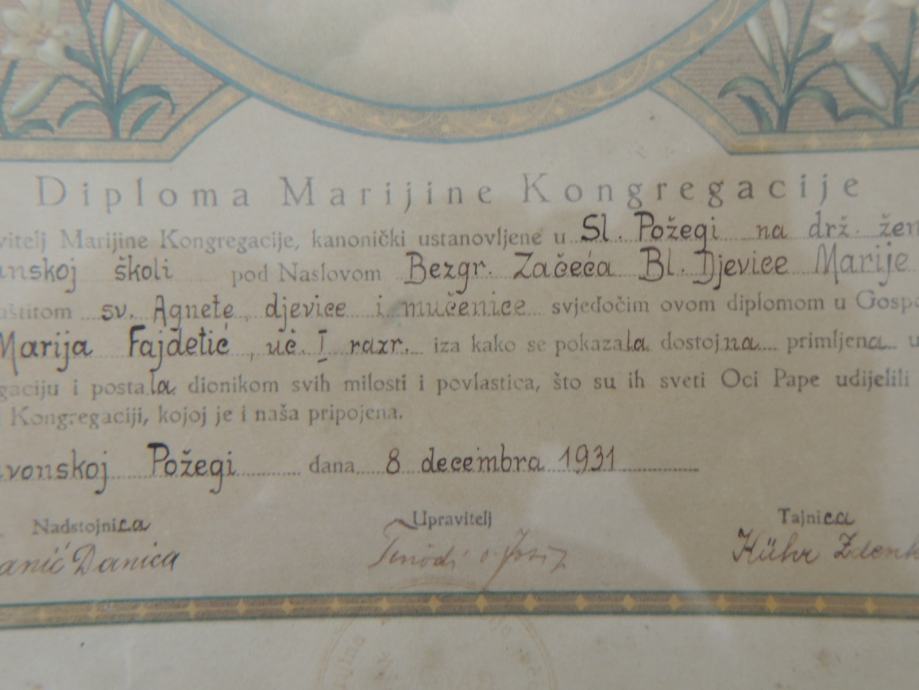 Diploma Marijine Kongregacije
vitelj Marijine Kongregacije, kanonički ustanovljene u Sl. Požegi na drž. žen
anskoj školi pod Naslovom Bezgr. Začeća Bl. Djevice Marije
aštitom sv. Agnete, djevice i mučenice svjedočim ovom diplomom u Gospo
Marija Fajdetić, uč. I razr. iza kako se pokazala dostojna primljena u
gaciju i postala dionikom svih milosti i povlastica, što su ih sveti Oci Pape udijelili
Kongregaciji, kojoj je i naša pripojena.
vonskoj Požegi dana 8 decembra 1931
Nadstojnica Upravitelj Tajnica
anić Danica Kühr Zdenk